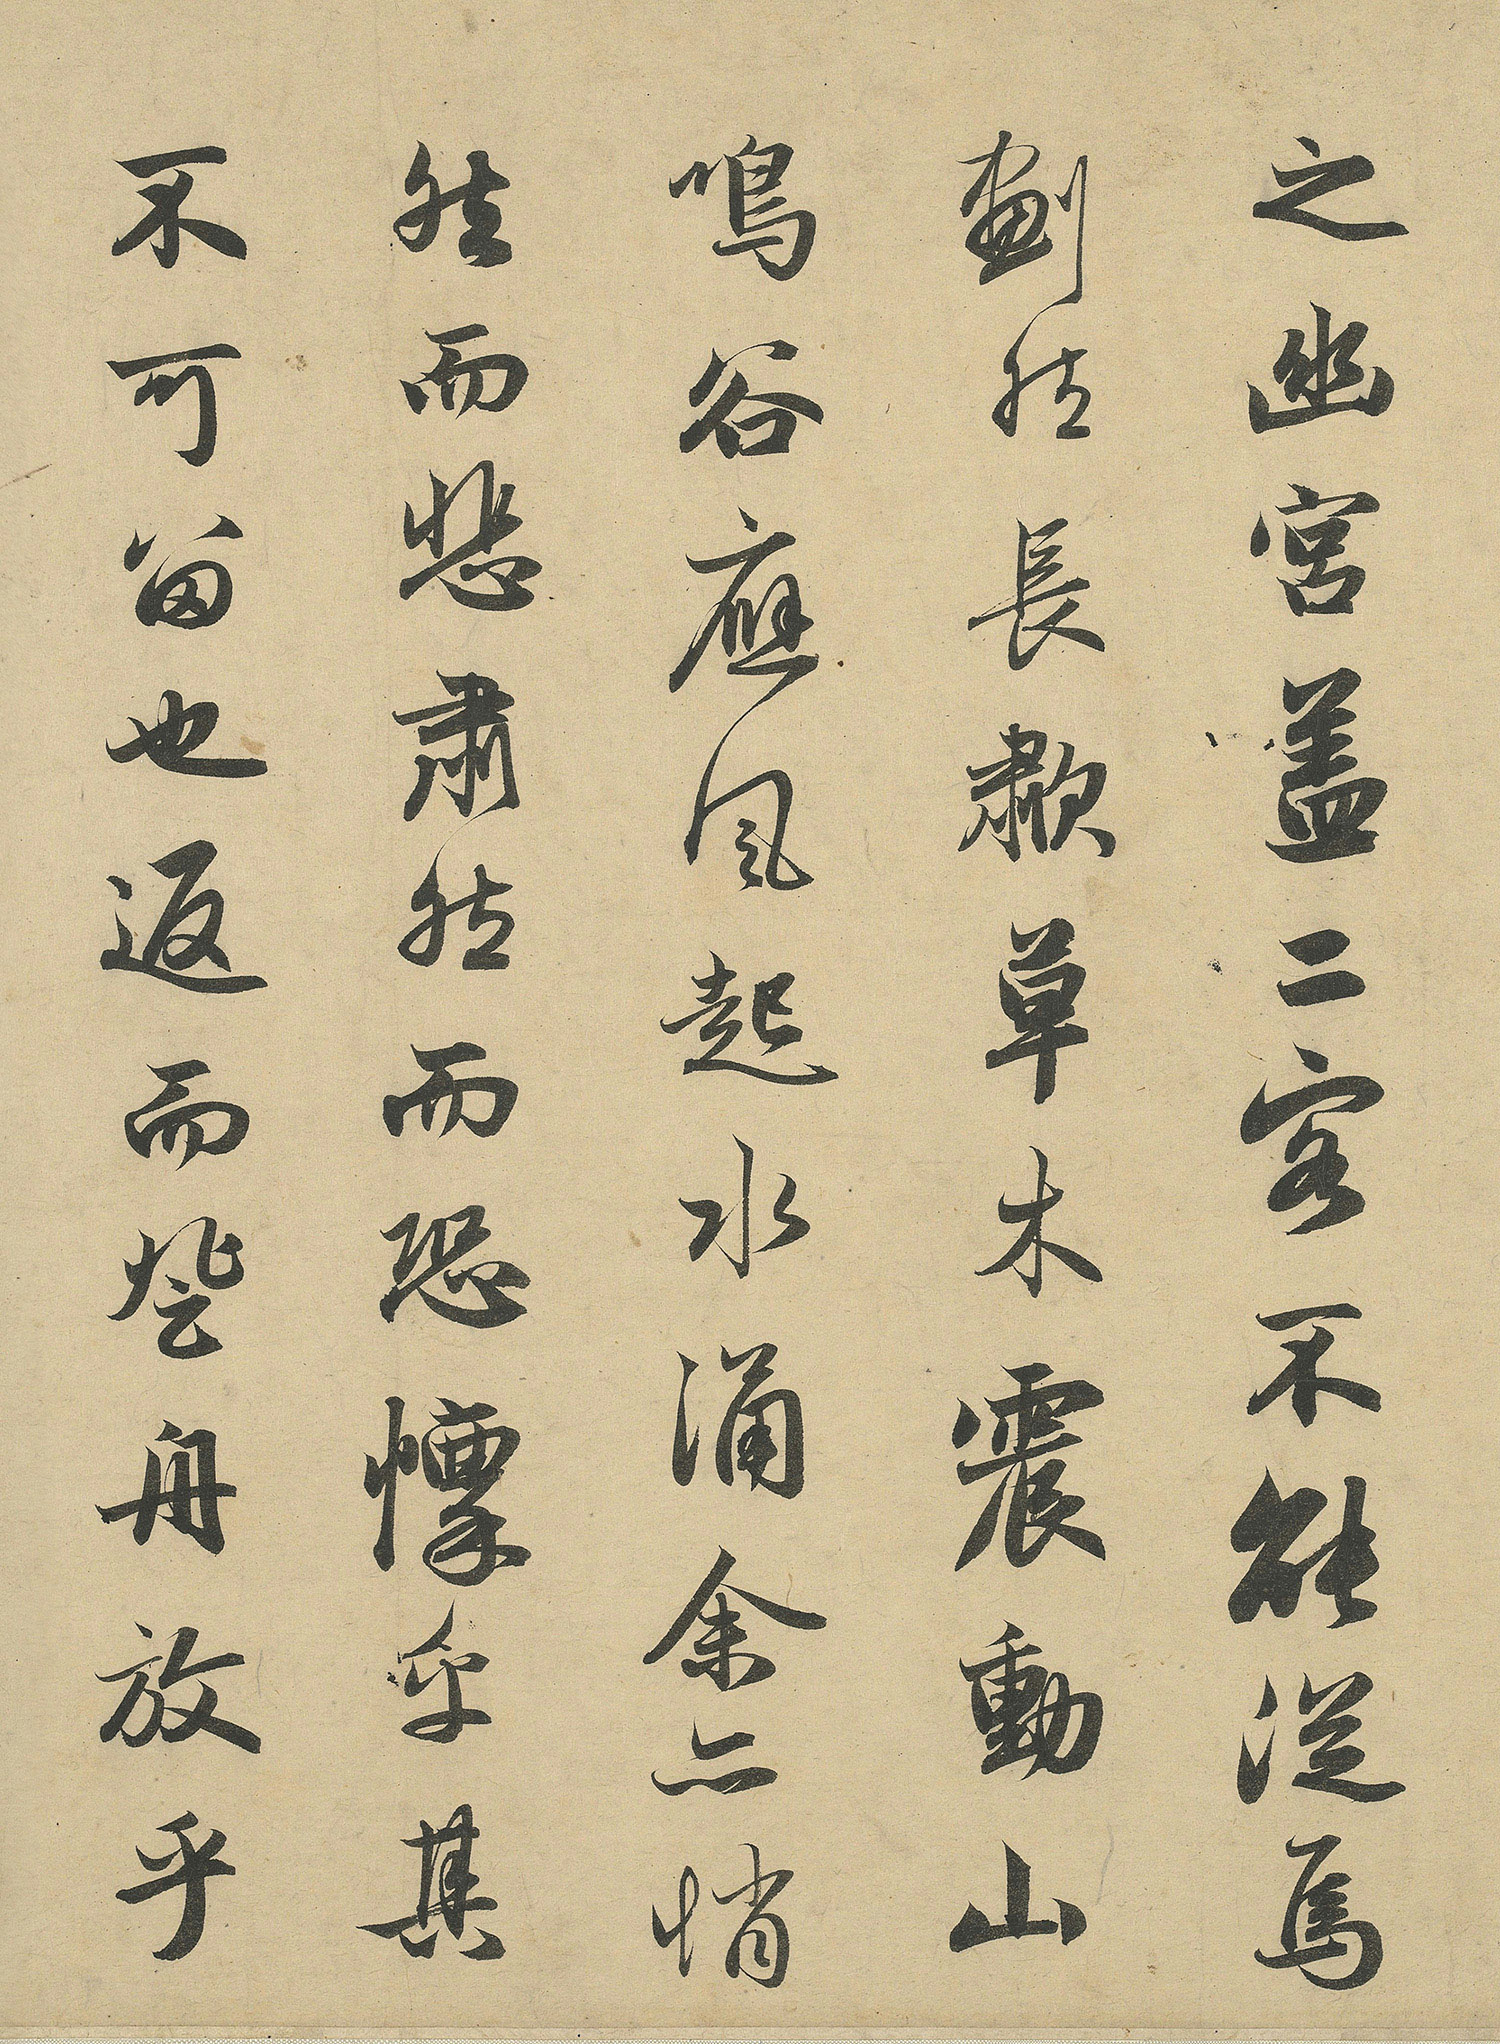 之幽宮盖二客不能從焉
劃然長歗草木震動山
鳴谷應風起水涌余亦悄
然而悲肅然而恐懔乎其
不可留也返而登舟放乎